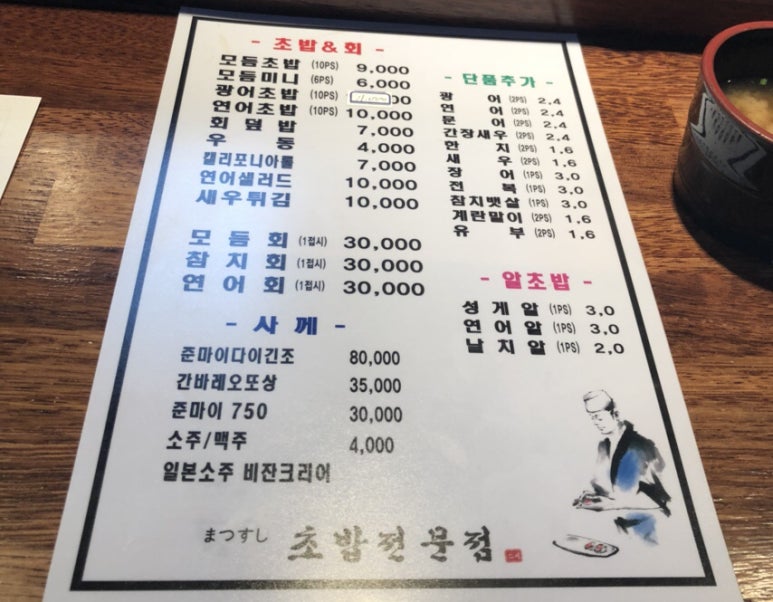 - 초밥&회 -
모듬초밥 (10PS) 9,000
모듬미니 (6PS) 6,000
광어초밥 (10PS) 00
연어초밥 (10PS) 10,000
회덮밥 7,000
우동 4,000
캘리포니아롤 7,000
연어샐러드 10,000
새우튀김 10,000
모듬회 (1접시) 30,000
참치회 (1접시) 30,000
연어회 (1접시) 30,000
- 사께 -
준마이다이긴조 80,000
간바레오또상 35,000
준마이 750 30,000
소주/맥주 4,000
일본소주 비잔크리어
- 단품추가 -
광어 (2PS) 2,4
연어 (2PS) 2,4
문어 (2PS) 2,4
간장새우 (2PS) 2,4
한치 (2PS) 1,6
새우 (2PS) 1,6
장어 (1PS) 3,0
전복 (1PS) 3,0
참치뱃살 (1PS) 3,0
계란말이 (2PS) 1,6
유부 (2PS) 1,6
- 알초밥 -
성게알 (1PS) 3,0
연어알 (1PS) 3,0
날치알 (1PS) 2,0
まつすし 초밥전문점